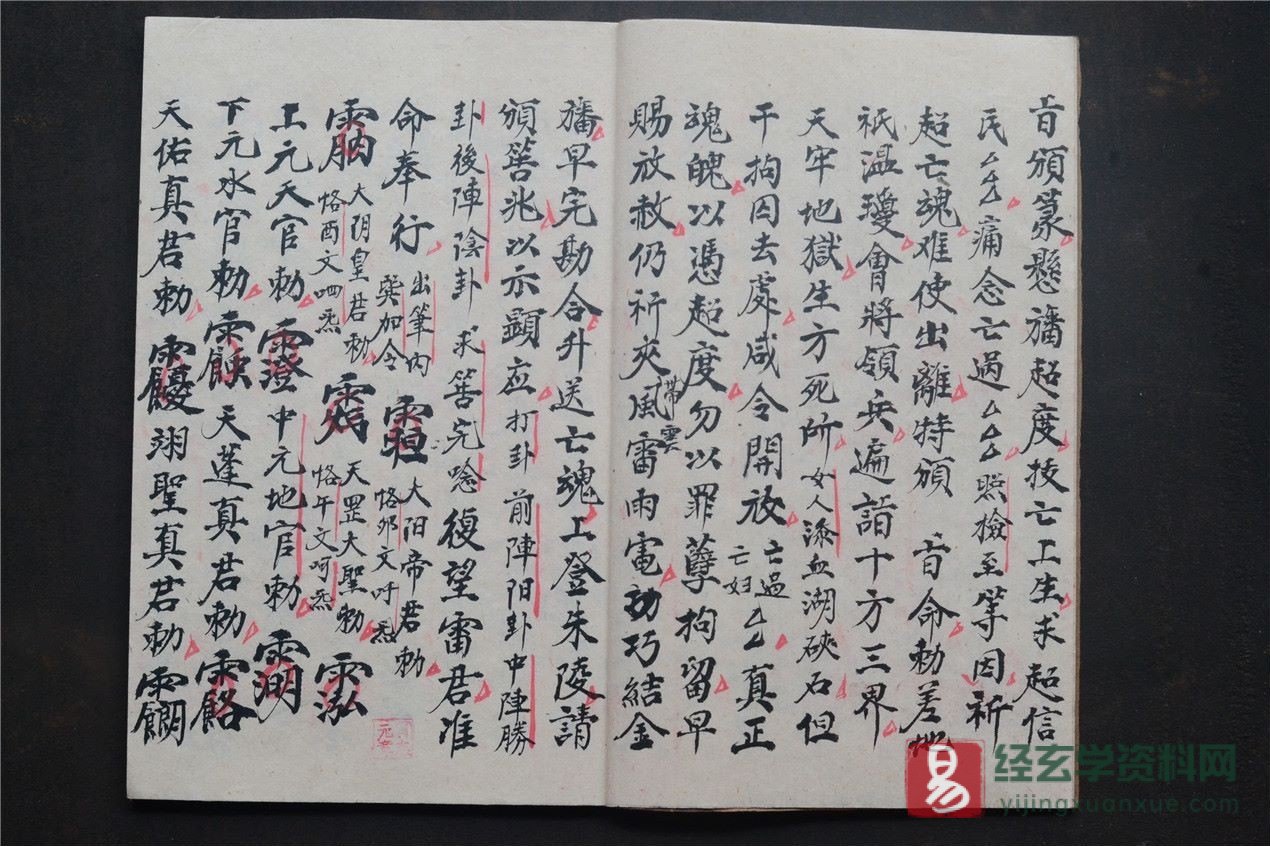 旨頒篆懸旛超度技亡工生求超信
民厶厶痛念亡過厶厶厶照撿至等因祈
超亡魂难使出離特頒 旨命勅差地
祇温瓊會將領兵遍詣十方三界
天牢地獄生方死所女人添血湖硤石但
干拘囚去處咸令開放亡過亡妇厶厶真正
魂魄以憑超度勿以罪孽拘留早
賜放赦仍祈夾風帶雲雷雨電 巧結金
旛早完勘合升送亡魂上登朱陵請
頒筶兆以示顕应打卦前陣阳卦中陣勝
卦後陣陰卦求筶完唸復望雷君准
命奉行出筆内巽加令 大阳帝君勅恪夘文吇炁
大阴皇君勅恪酉文呬炁 天罡大聖勅恪午文呵炁
上元天官勅 中元地官勅
下元水官勅 天蓬真君勅
天佑真君勅 翊聖真君勅
易 经玄学资料网
yijingxuanxue.com